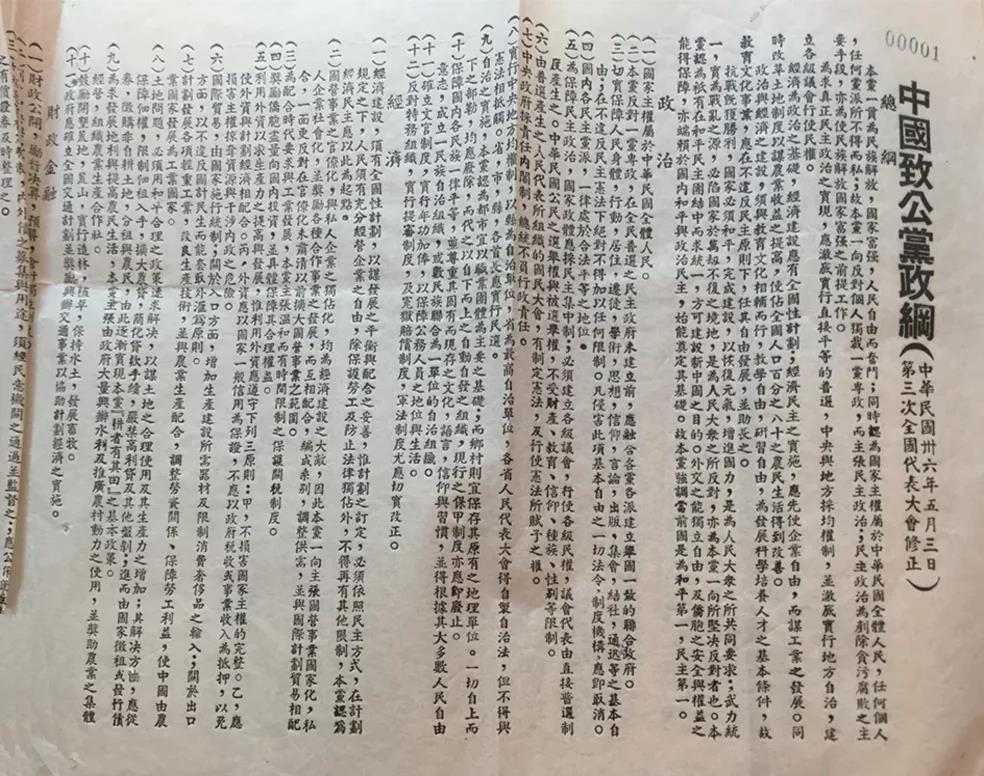 00001
中國致公黨政綱（中華民國卅六年五月三日第三次全國代表大會修正）
總綱
本黨一貫為民族解放，國家富強，人民自由而奮鬥；同時認為國家主權屬於中華民國全體人民，任何個人
，任何黨派所不得而私；故本黨一向反對個人獨裁一黨專政，而主張民主政治；民主政治為剷除貪污腐敗之主
要手段，亦為使民族解放國家富強之前提工作。
為求真正民主政治之實現，應澈底實行直接平等的普選，中央與地方採均權制，並澈底實行地方自治，建
立各級議會行使民權。
經濟為政治之基礎，經濟建設應有全國性計劃；經濟民主之實施，應先使企業自由，而謀工業之發展。同
時改革土地制度以謀農業收益之提高，使佔全國人口百分之八十之農民生活得到改善。
政治與經濟之建設，須與教育文化相輔而行，教學自由，研習自由，為發展科學培養人才之基本條件，故
教育文化事業，應在不違反民主原則下，任其自由發展，並助長之。
抗戰既獲勝利，國家必須和平，完成建設，以恢復元氣，增進國力，是為人民大衆之所共同要求；武力統
一，實為戰亂之源，必陷國家於萬劫不復之境地，是為人民大衆之所反對；亦為本黨一向所堅決反對者也。本
黨認為祇有在和平民主團結中而求統一，方可建設新中國之目的。外交之能獨立自由，及僑胞之安全與權益之
能得保障，亦端賴於國內和平與政治民主，始能奠定其基礎。故本黨強調當前國是為和平第一，民主第一。
政治
（一）國家主權屬於中華民國全體人民。
（二）本黨反對一黨專政，在全民普選之民主政府未建立前，應融合各黨各派建立舉國一致的聯合政府。
（三）切實保障人民身體，行動，居住，遷徙，學術，思想，信仰，言論，出版，集會，結社，通訊等之基本自
由；在不違反民主憲法下絕對不得加以任何限制。凡侵害此項基本自由之一切法令，制度機構，應即取消。
（四）國內各民主黨派，一律處於合法平等之地位。
（五）為保障民主政治，國家政體應採民主集中制；必須建立各級議會，行使各級民權，議會代表由直接普選制
度產生之。中華民國人民之選舉與被選舉權，不受財產，教育，信仰，種族，性別等限制。
（六）由普選產生之人民代表所組織的國民大會，有制定憲法，及行使憲法所賦予之權。
（七）中央政府採責任內閣制，總統不負行政責任。
（八）實行中央地方均權制，以縣為自治單位，省為最高自治單位，各省人民代表大會得自製自治法，但不得與
憲法相抵觸。省，市，縣，各首長應實行民選。
（九）自治之實施，本黨認為都市宜以職業團體為主要之基礎；而鄉村則宜保存其原有之地理單位。一切自上而
下之部勒，均應廢除，而代之以自下而上之自動自發之組織，現行之保甲制度亦應即廢止。
（十）保障國內各民族一律平等，並尊重其固有而現存之文化，語言，信仰與習慣，並得根據其大多數人民自由
意志，成立一民族自治組織，或數民族聯合為一單位的自治組織。
（十一）確立文官制度，實行年功加俸，以保障公務人員之地位與生活。
（十二）反對特務組織，實行提審制度，及冤獄賠償制度，軍法制度尤應切實改正。
經濟
（一）經濟建設，須有全國性計劃，以謀發展之平衡與配合之妥善，惟計劃之訂定，必須依照民主方式，在計劃
規定之下，人民須有充分經營企業之自由，除保護勞工及防止法律獨佔外，不得再有其他限制，本黨認為
經濟民主應以此為起點。
（二）國營事業之官僚化，與私人企業之獨佔化，均為經濟建設之大敵，因此本黨一向主張國營事業國家化，私
人企業社會化，並獎勵各種合作事業之發展，而互相配合，編成系列，調整供需，並與國際計劃貿易相配
合，一面更反對在官僚化未肅清以前擴大國營事業之範圍。
（三）為配合時代要求與工業發展，本黨主張溫和而有時間限制之保護關稅制度。
（四）獎勵僑胞盡量向國內投資，並具體保障其合理權益。
（五）利用外資以求生產力之提高與發展，惟利用外資應遵守下列三原則：甲，不得損害國家主權的完整。乙，應
使外資與計劃經濟相配合。丙，償付外債以國家一般信用為保證，不應以政府稅收或事業收入為抵押，以免
損害主權掠奪資源與干涉內政之危險。
（六）國際貿易，由國家施行統制；關於入口方面，增加生產建設所需器材及限制消費奢侈品之輸入；關於出口
方面，以不違反國計民生而能套取外滙為原則。
（七）計劃發展各項輕重工業，改良生產技術，並與農業生產配合，調整勞資關係，保障勞工利益，使中國由農
業國家發展為工業國家。
（八）土地問題，必須用和平合理之政策逐求解決，以謀土地之合理使用及其生產力之增加；其解決方法，應從
保障佃權，限制佃租入手，擴大農貸，簡化貸款手續，嚴禁高利貸及其他盤剝；進而由國家徵租或發行債
券，徵購非自耕土地，分租與農民，由此逐漸實現本黨『耕者有其田』之基本政策。
（九）為求發展地利與提高農民生活，本黨主張由政府大量興辦水利及推廣農村動力之使用，並獎助農業之集體
經營，組織農業生產合作社。
（十）鼓勵開墾荒地，荒山，實行造林，植草，保持水土，發展畜牧。
（十一）政府應確立全國交通計劃並獎勵興辦交通事業以協助計劃經濟之實施。
財政金融
（一）財政公開，勵行決算，預算，會計獨立制度。
內外債之募集與用途，須經民意機關之通過並監督之；應公佈
之有價證券及時整理之。